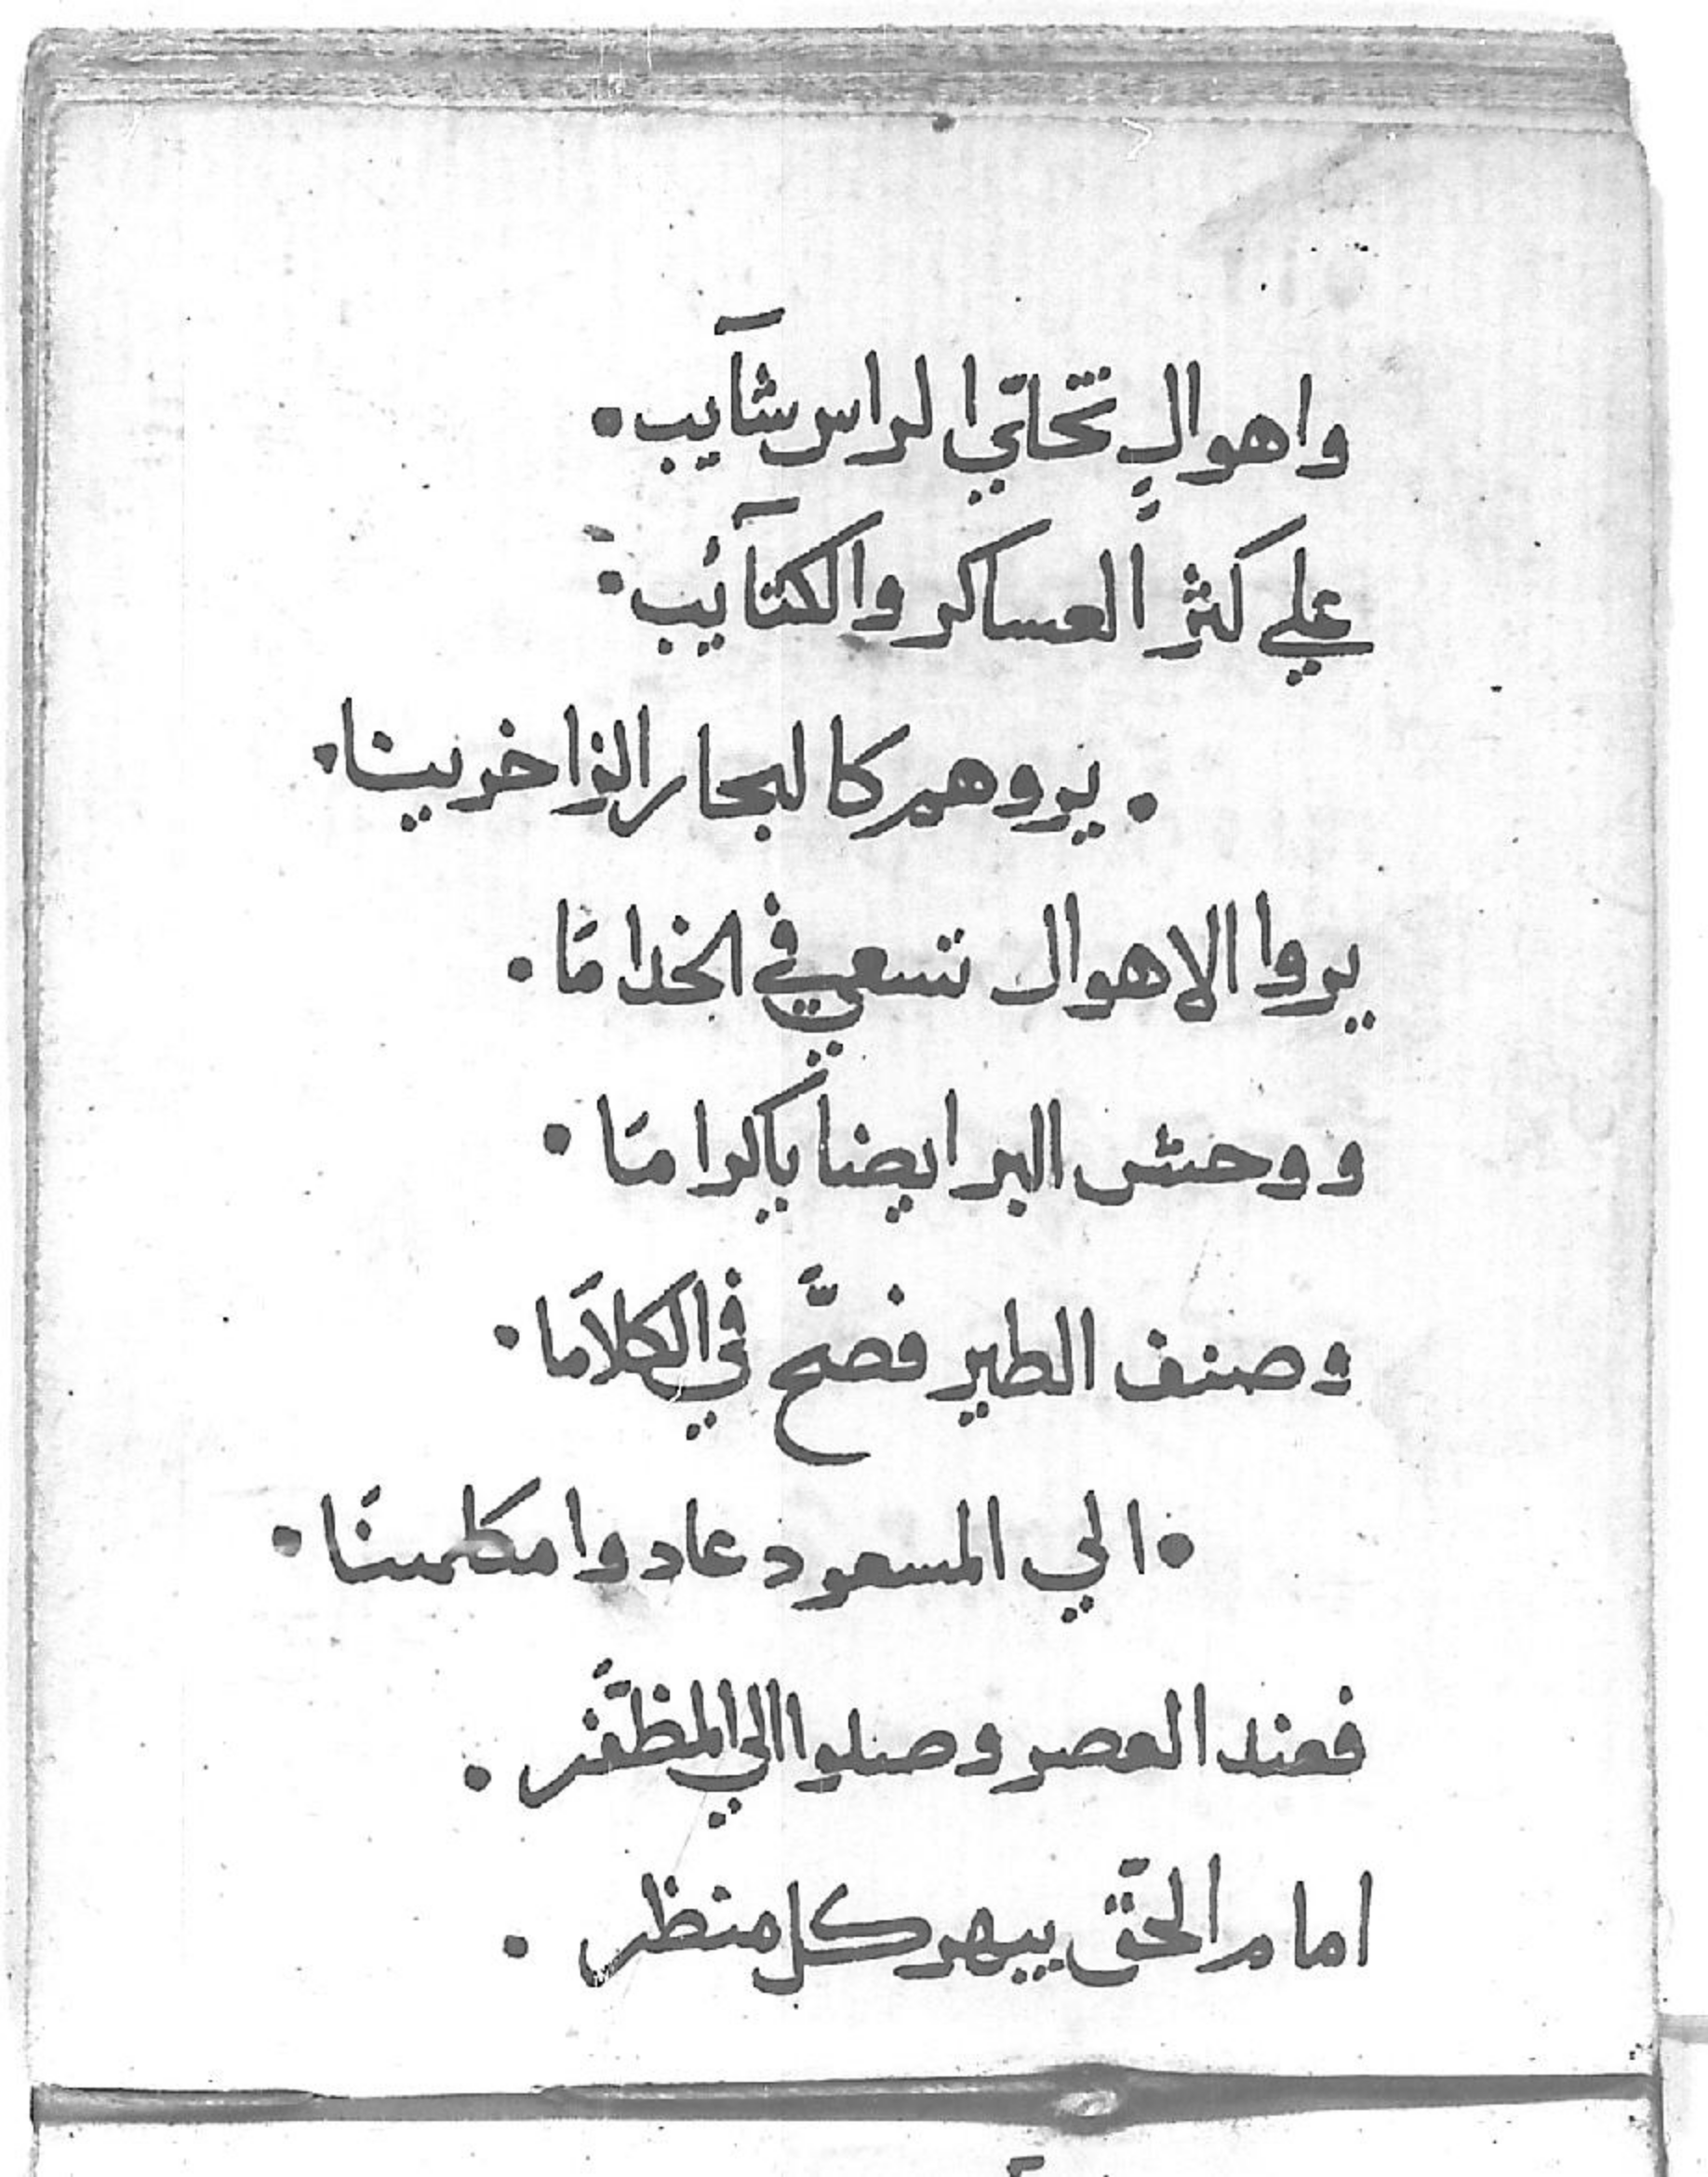 واهوالٍ تخلّي الراس شآيب.
علي كثر العساكر والكتآئيب.
. يروهم كالبحار الزاخرينا.
يروا الاهوال تسعي في الخدامَا.
ووحش البر ايضا باكرامَا.
وصنف الطير فصَّح في الكلامَا.
. الي المسعود عادوا مكلمينَا.
فعند العصر وصلوا الي المظفَّر.
امام الحقّ يبهر كل منظر.